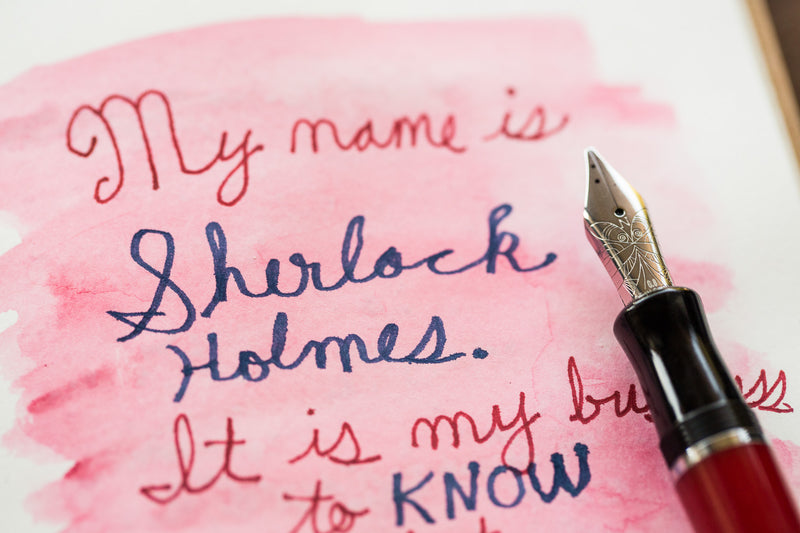 My name is
Sherlock
Holmes.
It is my business
to KNOW